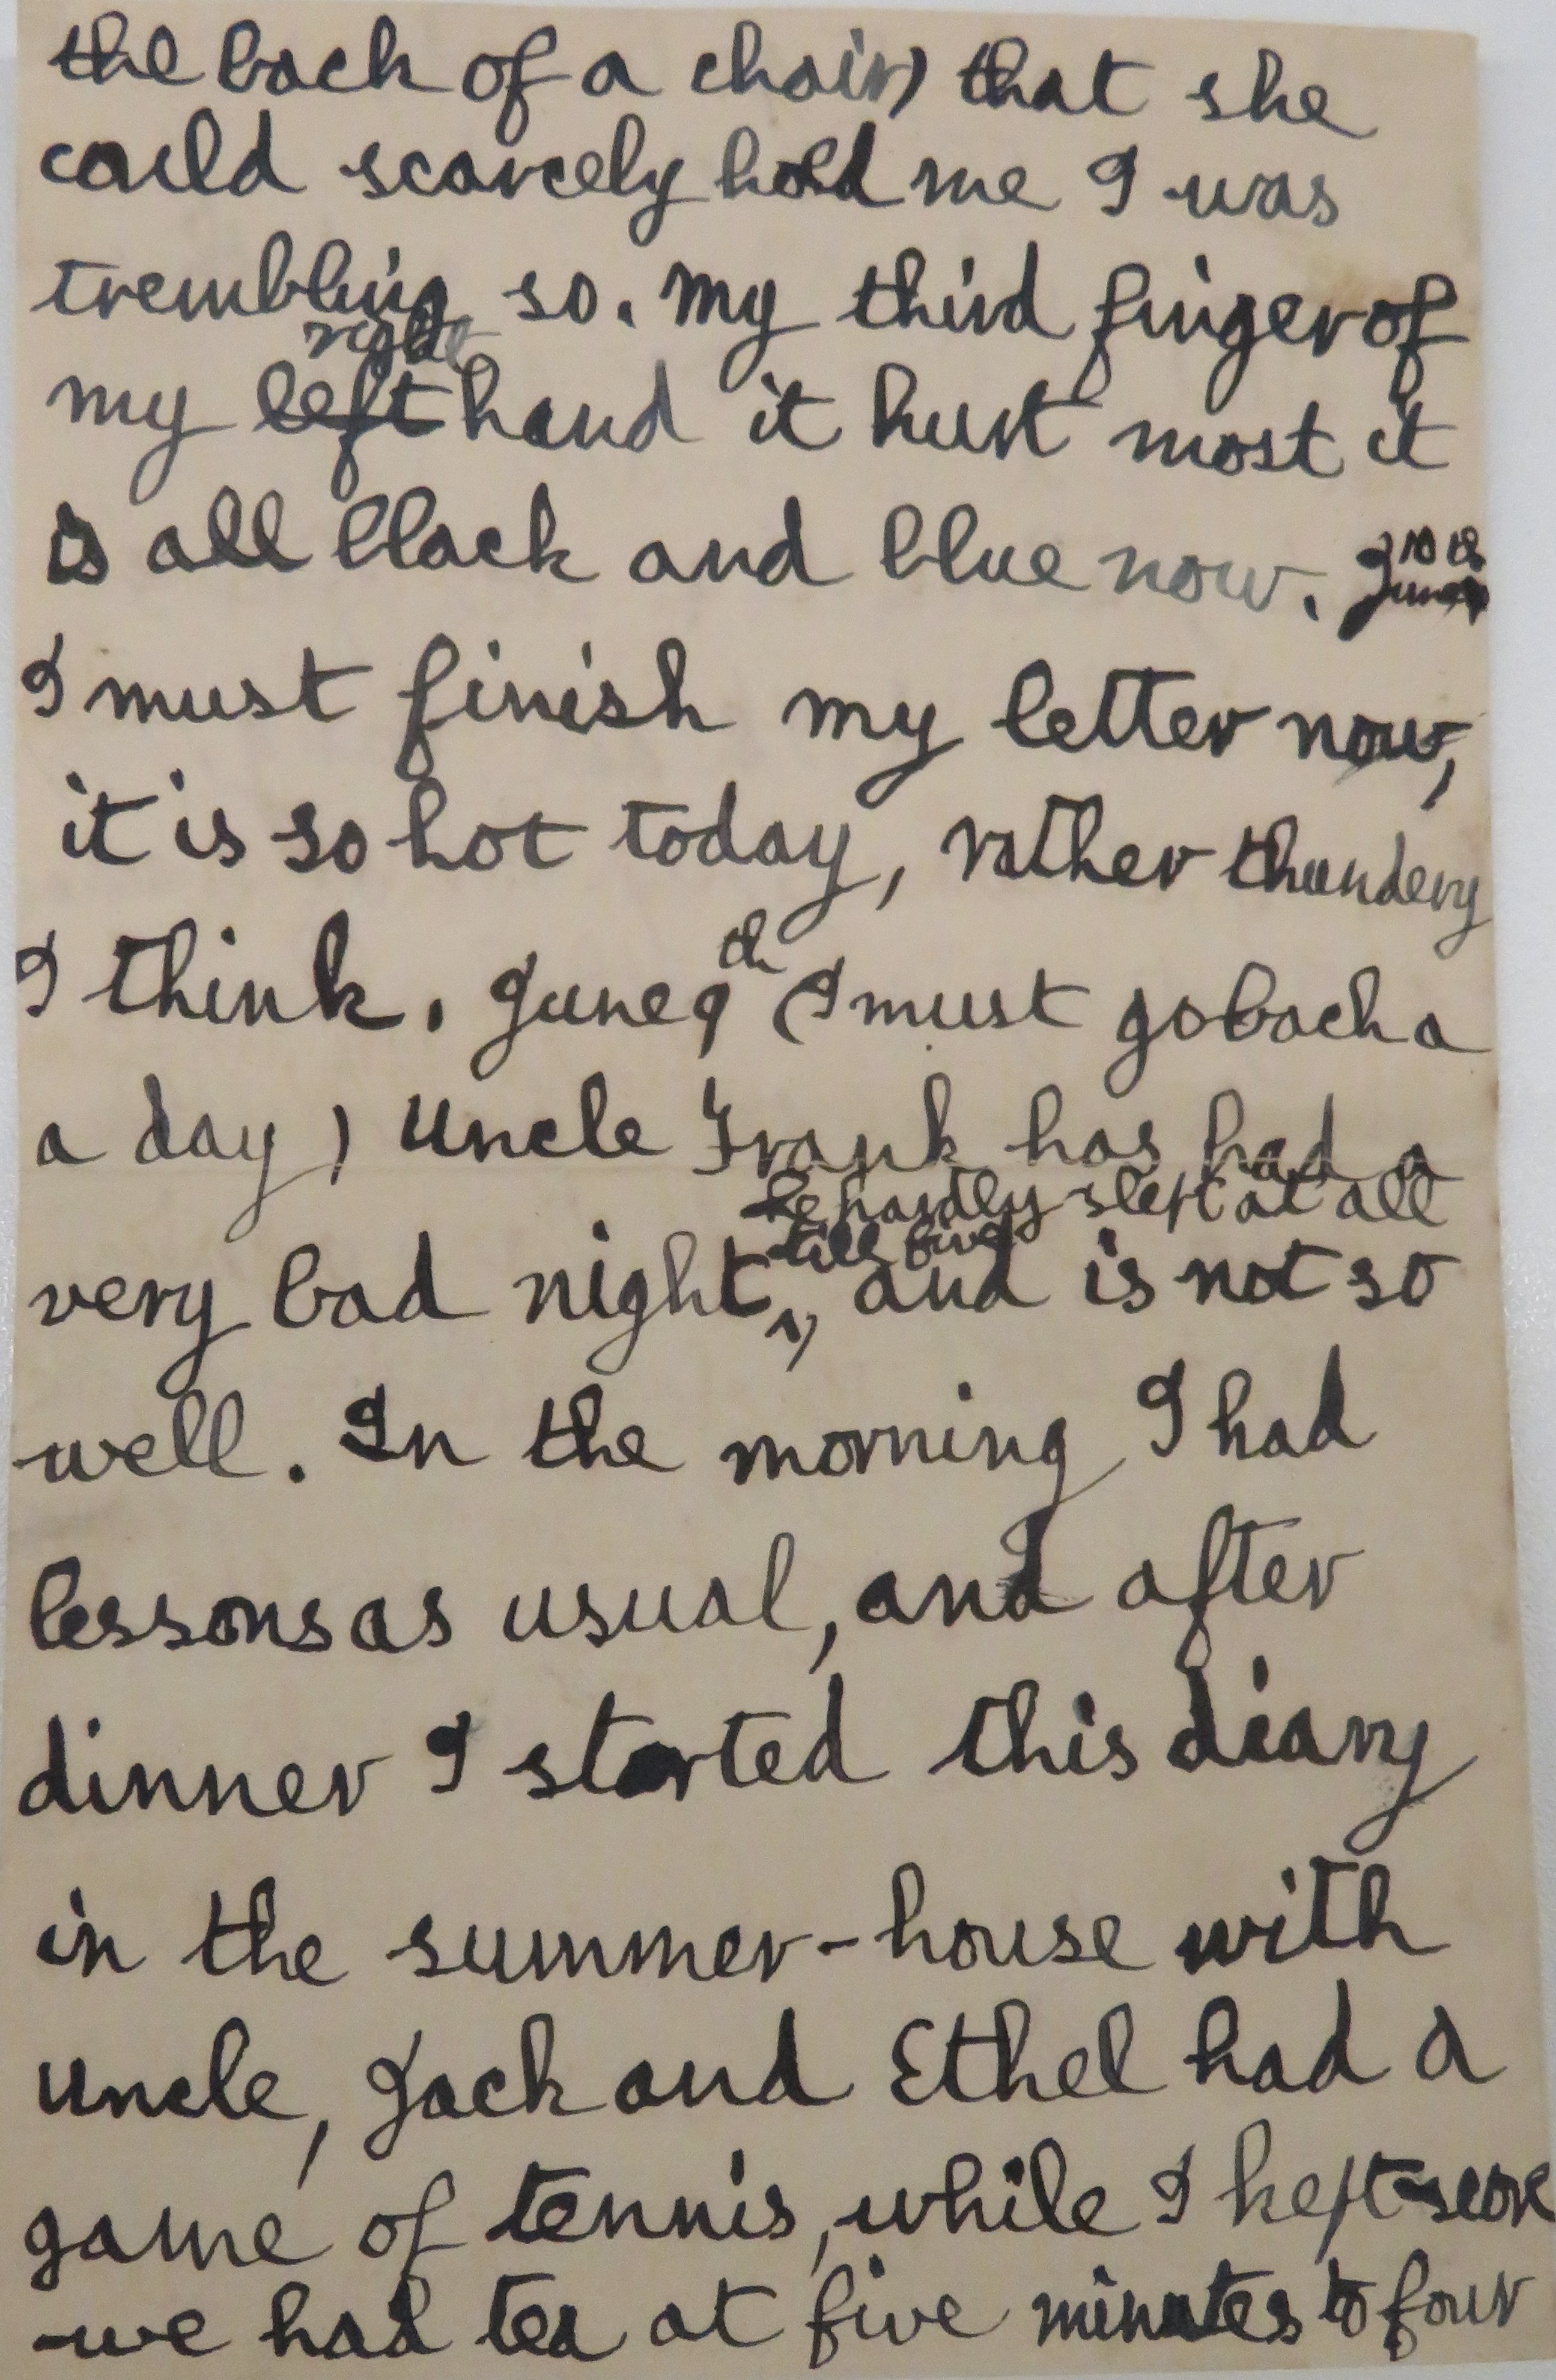 the back of a chair) that she
could scarcely hold me I was
trembling so. My third finger of
right
my left hand it hurt most it
is all black and blue now. 10th
June
I must finish my letter now,
it is so hot today, rather thundery
I think. June 9th (I must go back a
a day) Uncle Frank has had a
he hardly slept at all
till five
very bad night, and is not so
well. In the morning I had
lessons as usual, and after
dinner I started this diary
in the summer-house with
Uncle, Jack and Ethel had a
game of tennis, while I kept score
we had tea at five minutes to four